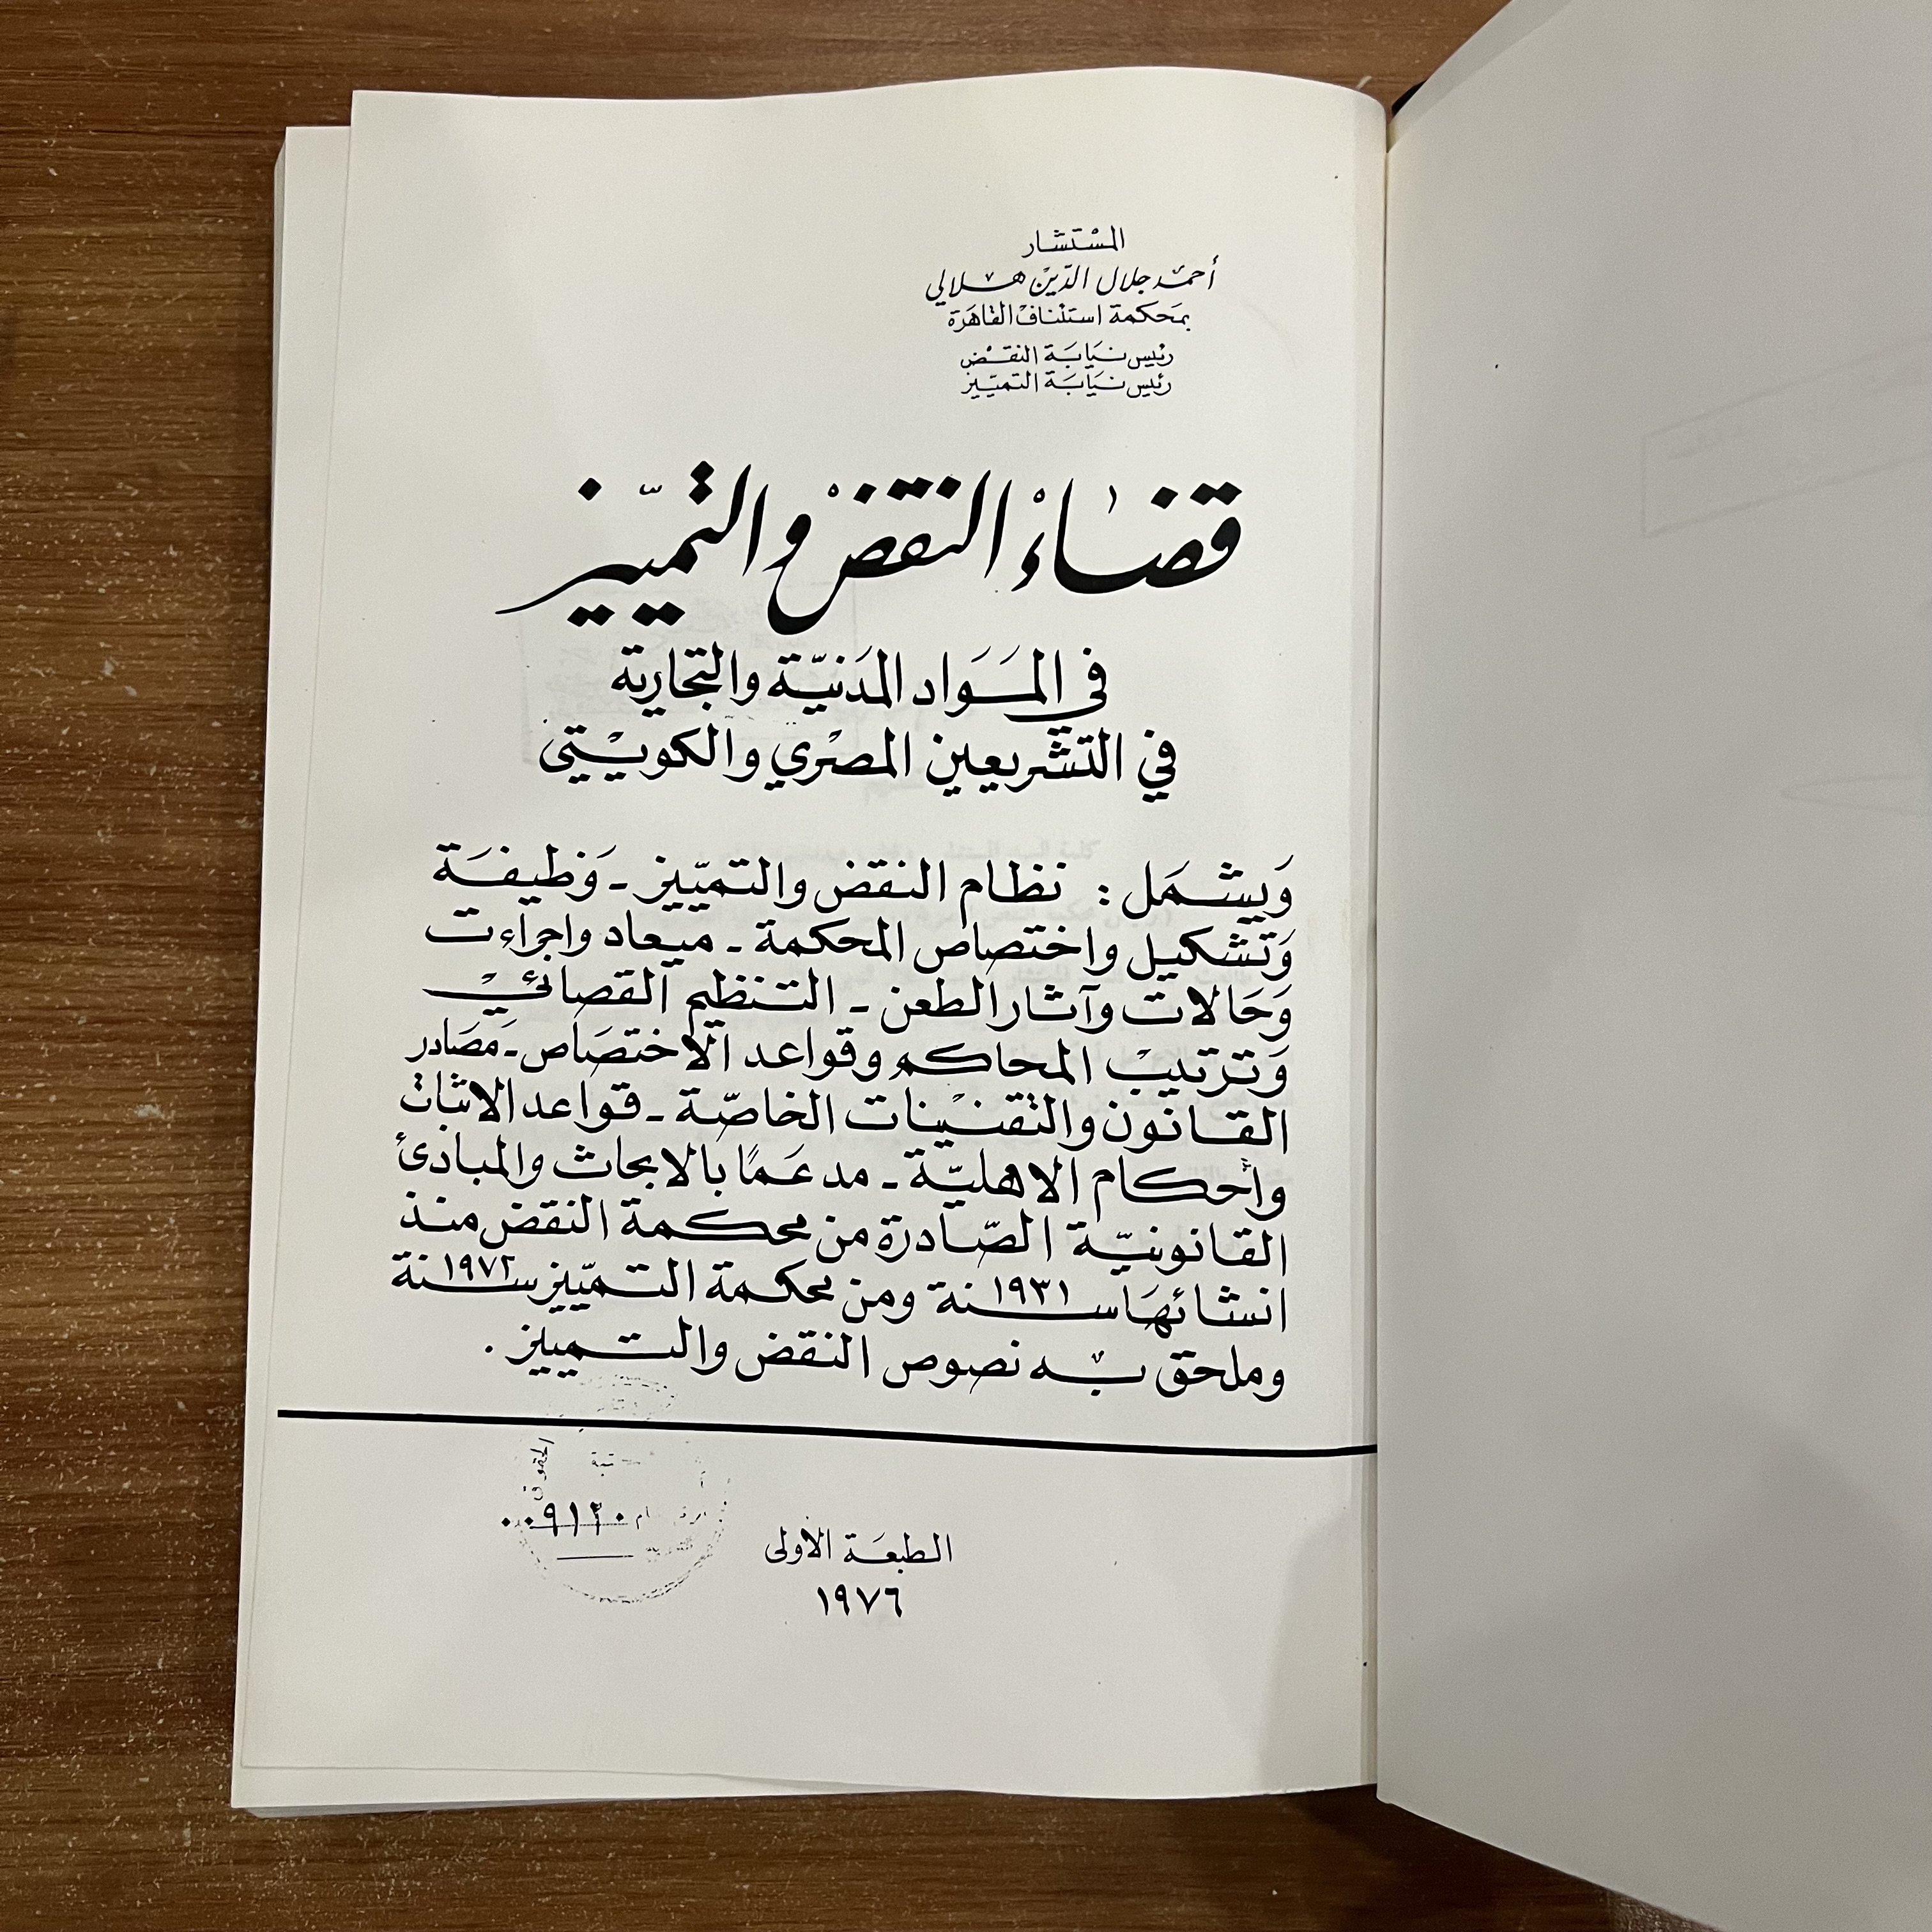 المستشار
أحمد جلال الدين هلالي
بمحكمة استئناف القاهرة
رئيس نيابة النقض
رئيس نيابة التمييز
قضاء النقض والتمييز
في المواد المدنية والتجارية
في التشريعين المصري والكويتي
ويشمل : نظام النقض والتمييز - وظيفة
وتشكيل واختصاص المحكمة - ميعاد واجراءت
وحالات وآثار الطعن - التنظيم القضائي
وترتيب المحاكم وقواعد الاختصاص - مصادر
القانون والتقنينات الخاصة - قواعد الاثبات
وأحكام الاهلية - مدعما بالابحاث والمبادئ
القانونية الصادرة من محكمة النقض منذ
انشائها سنة ١٩٣١ ومن محكمة التمييز سنة ١٩٧٢
وملحق به نصوص النقض والتمييز .
الحقوق
الطبعة الأولى
١٩٧٦